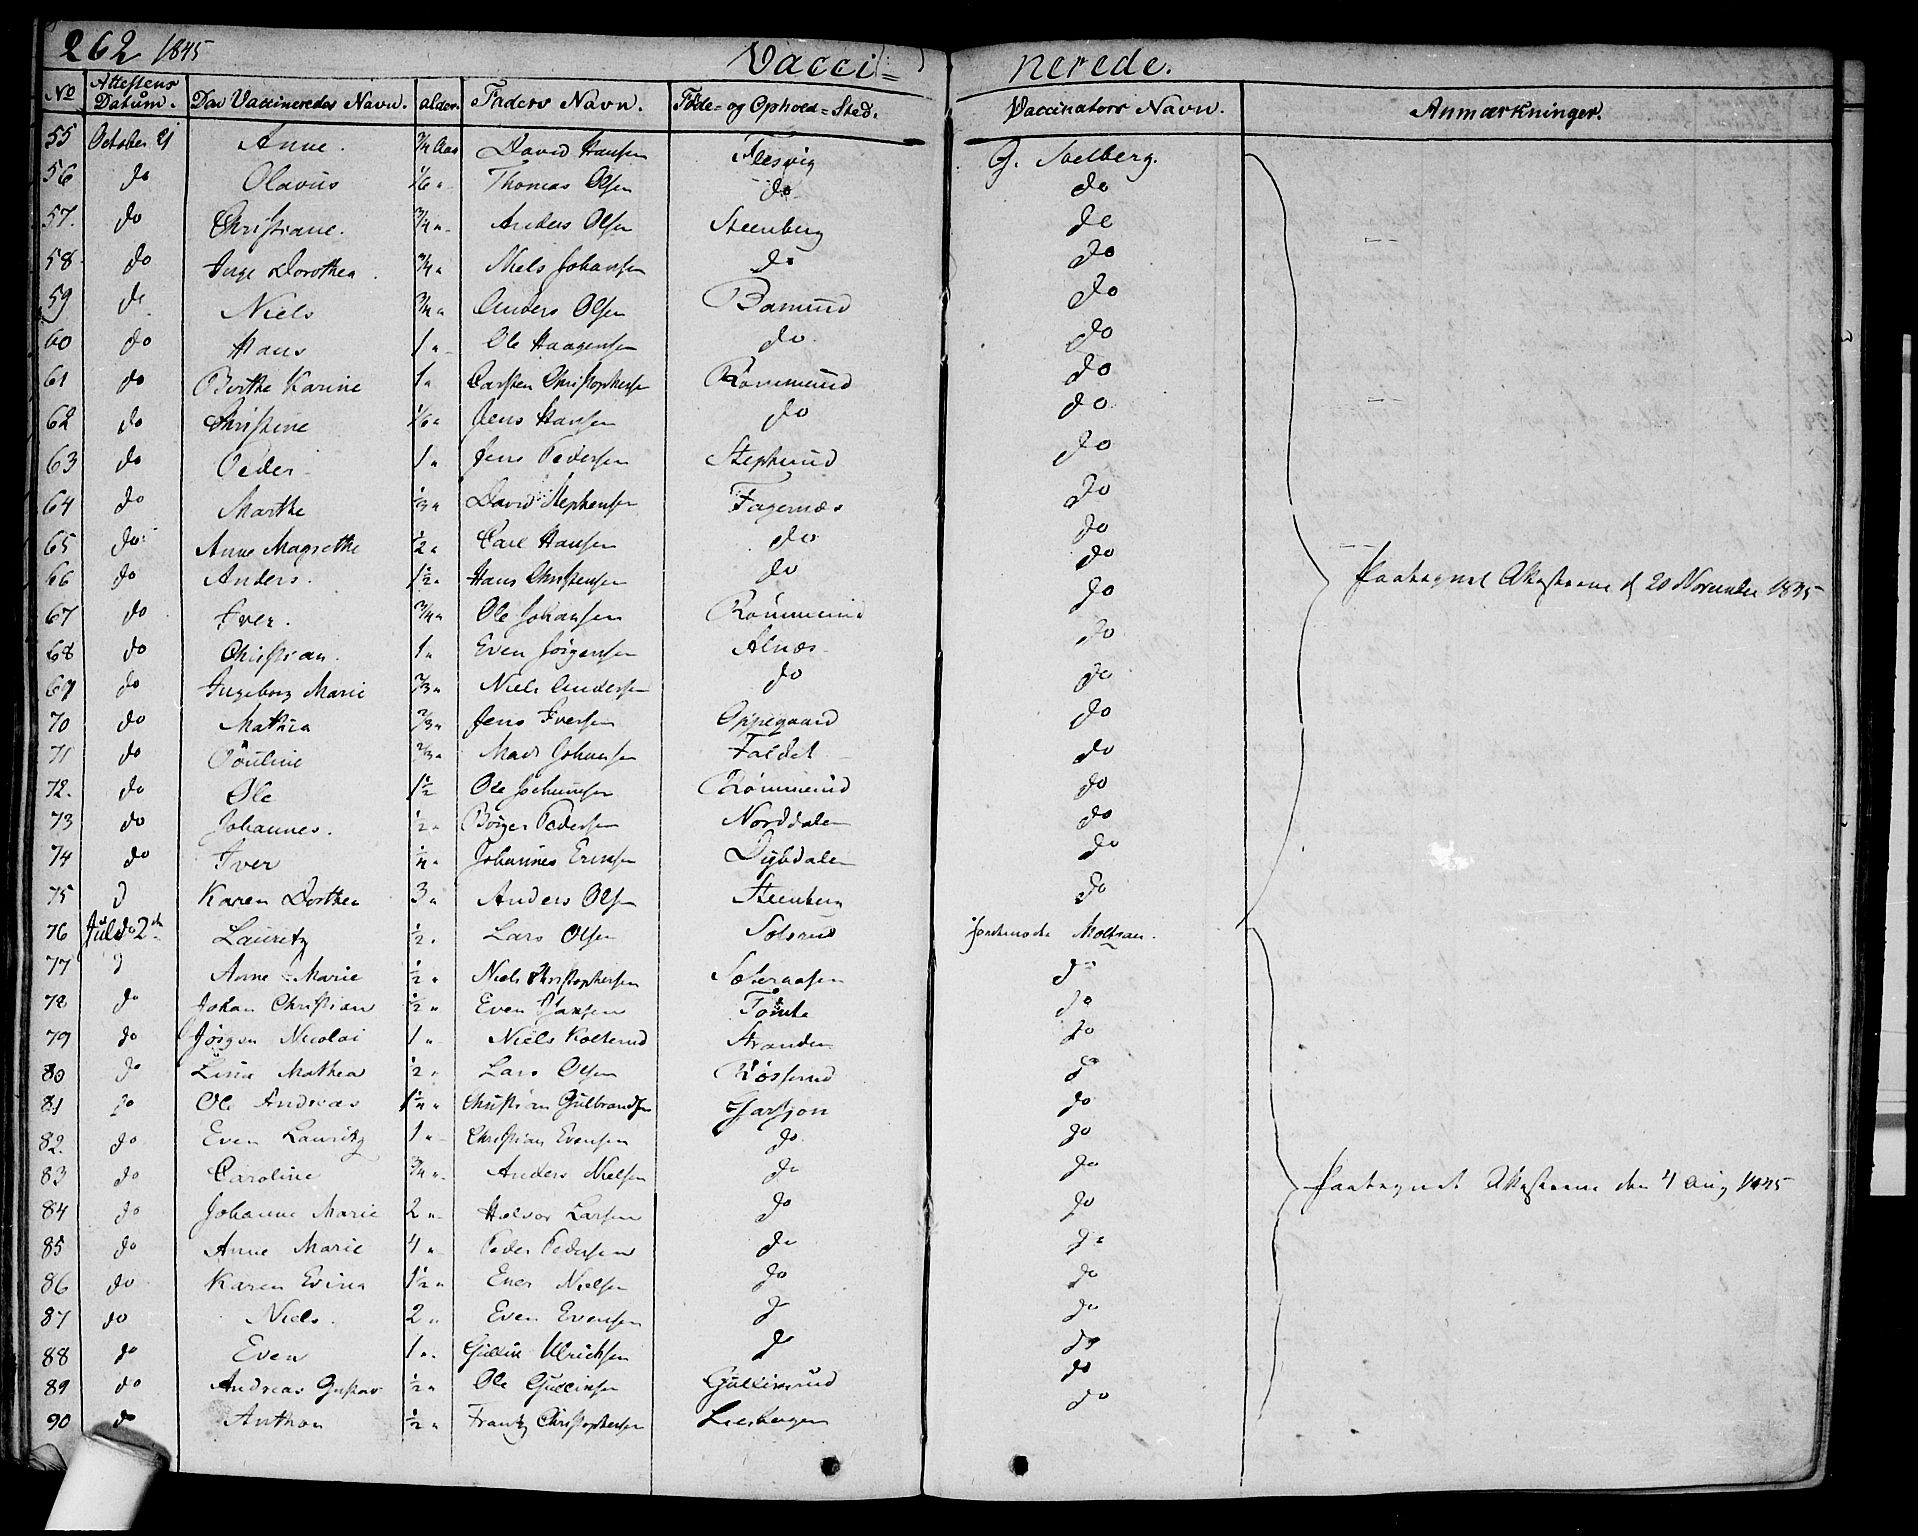 262 1845 Vaccinerede.
No Attestens Datum. Den Vaccineredes Navn. alder. Faders Navn. Føde- og Ophold-Sted. Vaccinators Navn. Anmærkninger.
55 October 21 Anne. 3/4 Aar David Hansen Flesvig G. Solberg.
56 do Olavus 1/6 " Thomas Olsen do do
57. do Christiane. 3/4 " Anders Olsen Steenberg do
58 do Inge Dorothea. 3/4 " Niels Johansen do do
59 do Niels 3/4 " Anders Olsen Bamrud do
60 do Hans 1 " Ole Haagensen do do
61 do Berthe Karine 1 " Carsten Christophersen Rømmerud do
62 do Christine 1/6 " Jens Hansen do do
63 do Peder 1 " Jens Pedersen Stephrud do
64 do Marthe 1/3 " David Stephensen Fagernæs do
65 do Anne Magrethe 1/2 " Carl Hansen do do
66 do Anders. 1 1/2 " Hans Christensen do do Paategnet Attesterne d 20 November 1845
67 do Iver. 3/4 " Ole Johansen Rømmerud do
68 do Christian. 1 " Even Jörgensen Alnæs do
69 do Ingeborg Marie 2/3 " Niels Andersen do do
70 do Mathea 2/3 " Jens Iversen Oppegaard do
71 do Pouline 2/3 " Mads Johansen Faldet do
72. do Ole 1 1/2 Ole Jochumsen Rømmerud do
73 do Johannes. 1/2 " Börger Pedersen Norddalen do
74 do Iver 1/4 " Johannes Ericsen Dybdalen do
75 d Karen Dorthea 3 " Anders Olsen Steenberg do
76 Juli 2den Lauritz 1/2 " Lars Olsen Solsrud Jordemoder Moltzau.
77 d Anne Marie 1/2 " Niels Christophersen Sæteraasen do
78 do Johan Christian 1/2 " Even Hansen Tömte do
79 do Jörgen Nicolai 1 " Niels Kolterud Stranden do
80 do Lisa Mathea 1/2 " Lars Olsen Røsserud do
81 do Ole Andreas 1 1/4 " Christian Gulbrandsen do
82. do Even Lauritz 1 " Christian Evensen do do
83 do Caroline 3/4 " Anders Nielsen do do
84 do Johanne Marie 2 " Halvor Larsen do do Paategnet Attesterne den 4 Aug 1845
85 do Anne Marie 4 " Peder Pedersen do do
86 do Karen Evina 1 1/2 " Even Nielsen do do
87 do Niels. 2 " Even Evensen d do
88 do Even 1 " Gullik Ulrichsen d do
89 do Andreas Gustav 1/2 " Ole Gullinsen Gullinsrud do
90 do Anthon 1/2 " Frantz Christophersen do